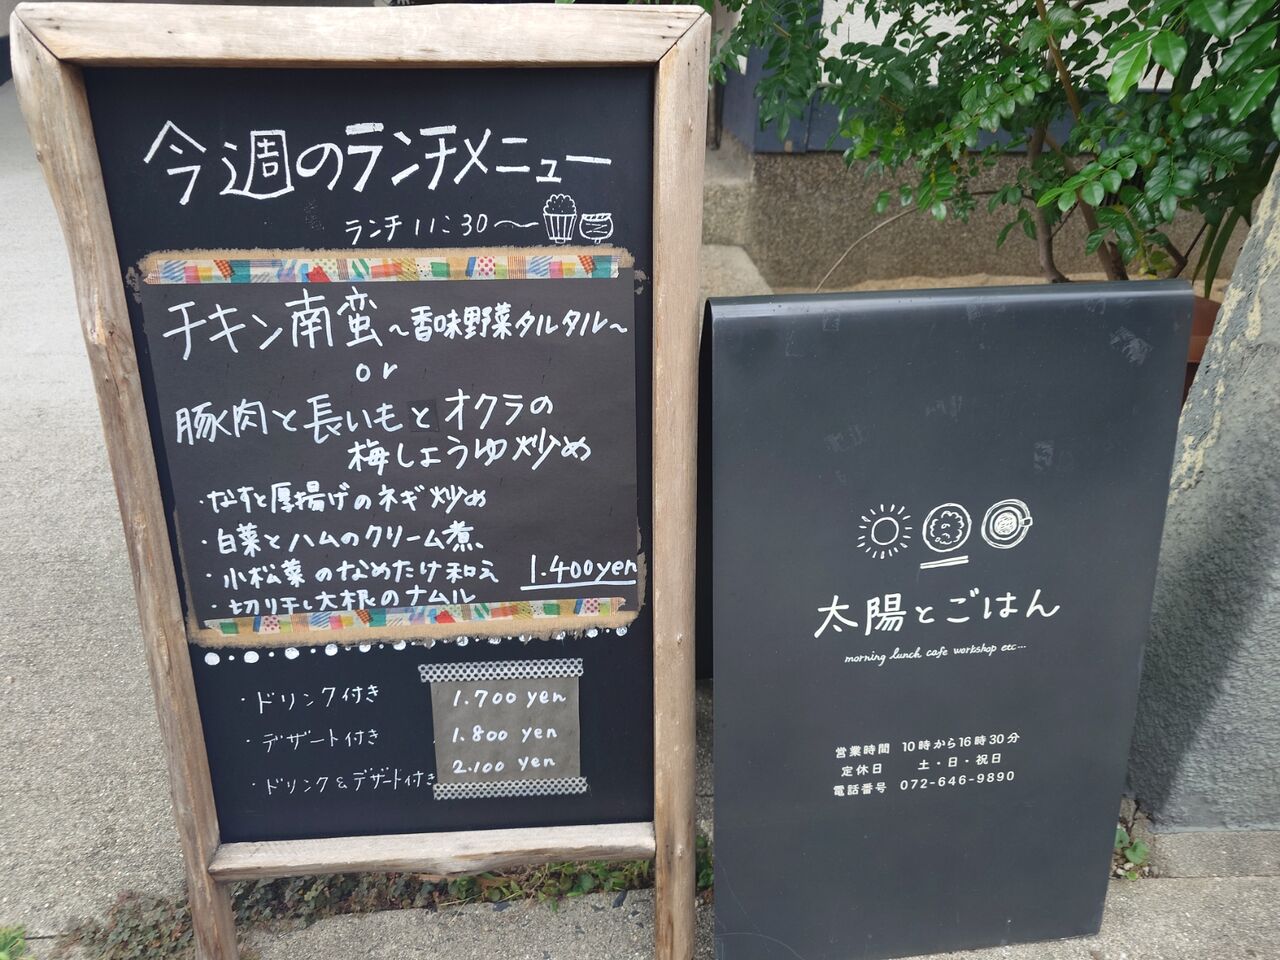 今週のランチメニュー
ランチ 11:30〜
チキン南蛮〜香味野菜タルタル〜
or
豚肉と長いもとオクラの
梅しょうゆ炒め
・なすと厚揚げのネギ炒め
・白菜とハムのクリーム煮
・小松菜のなめたけ和え 1.400yen
・切り干し大根のナムル
・ドリンク付き 1.700 yen
・デザート付き 1.800 yen
・ドリンク&デザート付き 2.100 yen
太陽とごはん
morning lunch cafe workshop etc...
営業時間 10時から16時30分
定休日 土・日・祝日
電話番号 072-646-9890